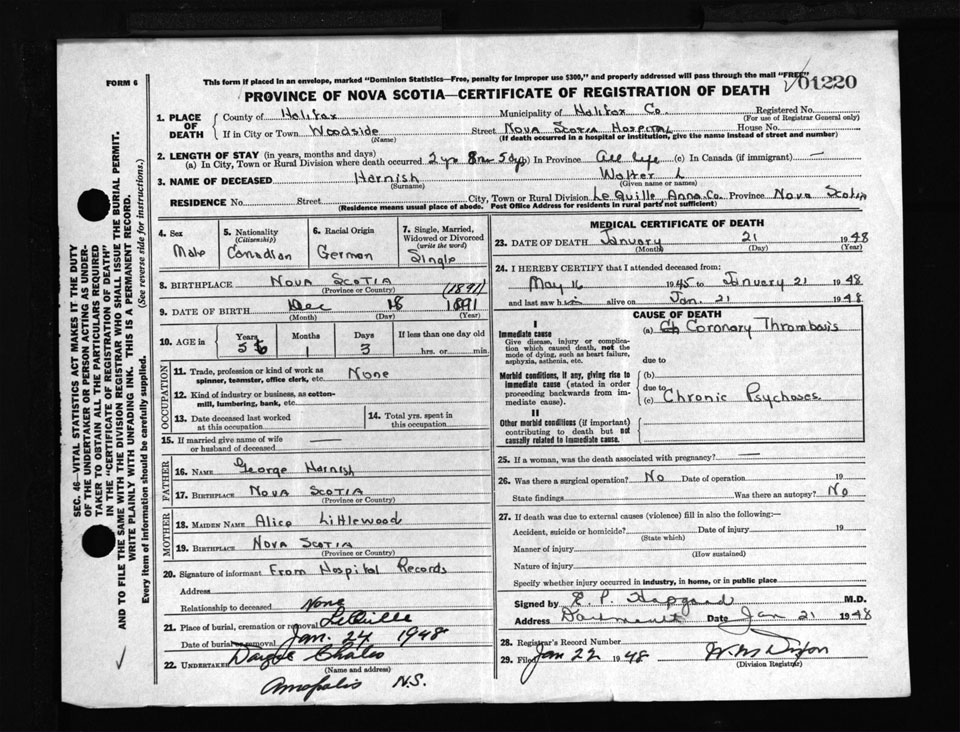 FORM 6
This form if placed in an envelope, marked "Dominion Statistics—Free, penalty for improper use $300," and properly addressed will pass through the mail "FREE"
01220
PROVINCE OF NOVA SCOTIA—CERTIFICATE OF REGISTRATION OF DEATH
1. PLACE OF DEATH
County of Halifax Municipality of Halifax Co. Registered No.
(For use of Registrar General only)
If in City or Town Woodside Street Nova Scotia Hospital House No.
(Name) (If death occurred in a hospital or institution, give the name instead of street and number)
2. LENGTH OF STAY (in years, months and days)
(a) In City, Town or Rural Division where death occurred 2 yr 8m 5 dy (b) In Province all life (c) In Canada (if immigrant) —
3. NAME OF DECEASED Harnish Walter L
(Surname) (Given name or names)
RESIDENCE No. Street City, Town or Rural Division LeQuille Anna. Co. Province Nova Scotia
(Residence means usual place of abode. Post Office Address for residents in rural parts not sufficient)
4. Sex Male
5. Nationality (Citizenship) Canadian
6. Racial Origin German
7. Single, Married, Widowed or Divorced (write the word) Single
8. BIRTHPLACE Nova Scotia
(Province or Country) (1891)
9. DATE OF BIRTH Dec 18 1891
(Month) (Day) (Year)
10. AGE in Years 56 Months 1 Days 3 If less than one day old
hrs. or min.
OCCUPATION
11. Trade, profession or kind of work as spinner, teamster, office clerk, etc. None
12. Kind of industry or business, as cotton-mill, lumbering, bank, etc.
13. Date deceased last worked at this occupation
14. Total yrs. spent in this occupation
15. If married give name of wife or husband of deceased —
FATHER
16. NAME George Harnish
17. BIRTHPLACE Nova Scotia
(Province or Country)
MOTHER
18. MAIDEN NAME Alice Littlewood
19. BIRTHPLACE Nova Scotia
(Province or Country)
20. Signature of informant From Hospital Records
Address
Relationship to deceased None
21. Place of burial, cremation or removal LeQuille
Date of burial or removal Jan. 24 1948
22. UNDERTAKER
(Name and address)
Annapolis N.S.
MEDICAL CERTIFICATE OF DEATH
23. DATE OF DEATH January 21 1948
(Month) (Day) (Year)
24. I HEREBY CERTIFY that I attended deceased from:
May 16 1945 to January 21 1948
and last saw him alive on Jan. 21 1948
CAUSE OF DEATH
I
Immediate cause
Give disease, injury or complication which caused death, not the mode of dying, such as heart failure, asphyxia, asthenia, etc.
(a) Coronary Thrombosis
due to
Morbid conditions, if any, giving rise to immediate cause (stated in order proceeding backwards from immediate cause).
(b)
due to
(c) Chronic Psychoses.
II
Other morbid conditions (if important) contributing to death but not causally related to immediate cause.
25. If a woman, was the death associated with pregnancy? —
26. Was there a surgical operation? No Date of operation 19
State findings Was there an autopsy? No
27. If death was due to external causes (violence) fill in also the following:—
Accident, suicide or homicide? Date of injury 19
(State which)
Manner of injury
(How sustained)
Nature of injury
Specify whether injury occurred in industry, in home, or in public place
Signed by E. P. Hapgood M.D.
Address Dartmouth Date Jan 21 1948
28. Registrar's Record Number
29. Filed Jan 22 1948
(Division Registrar)
SEC. 46—VITAL STATISTICS ACT MAKES IT THE DUTY
OF THE UNDERTAKER OR PERSON ACTING AS UNDERTAKER TO OBTAIN ALL THE PARTICULARS REQUIRED
IN THE "CERTIFICATE OF REGISTRATION OF DEATH"
AND TO FILE THE SAME WITH THE DIVISION REGISTRAR WHO SHALL ISSUE THE BURIAL PERMIT.
WRITE PLAINLY WITH UNFADING INK. THIS IS A PERMANENT RECORD.
Every item of information should be carefully supplied. (See reverse side for instructions.)